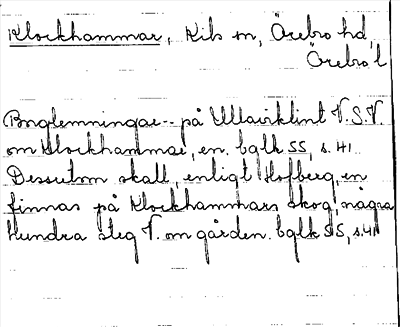 Klockhammar, Kils sn, Örebro hd,
Örebro l
Borglemningar-- på Ullaviklint V.S.V.
om Klockhammar, en. bglk SS, s. 41
Dessutom skall, enligt Hofberg, en
finnas på Klockhammars skog, några
hundra steg V. om gården. bglk SS, s. 41